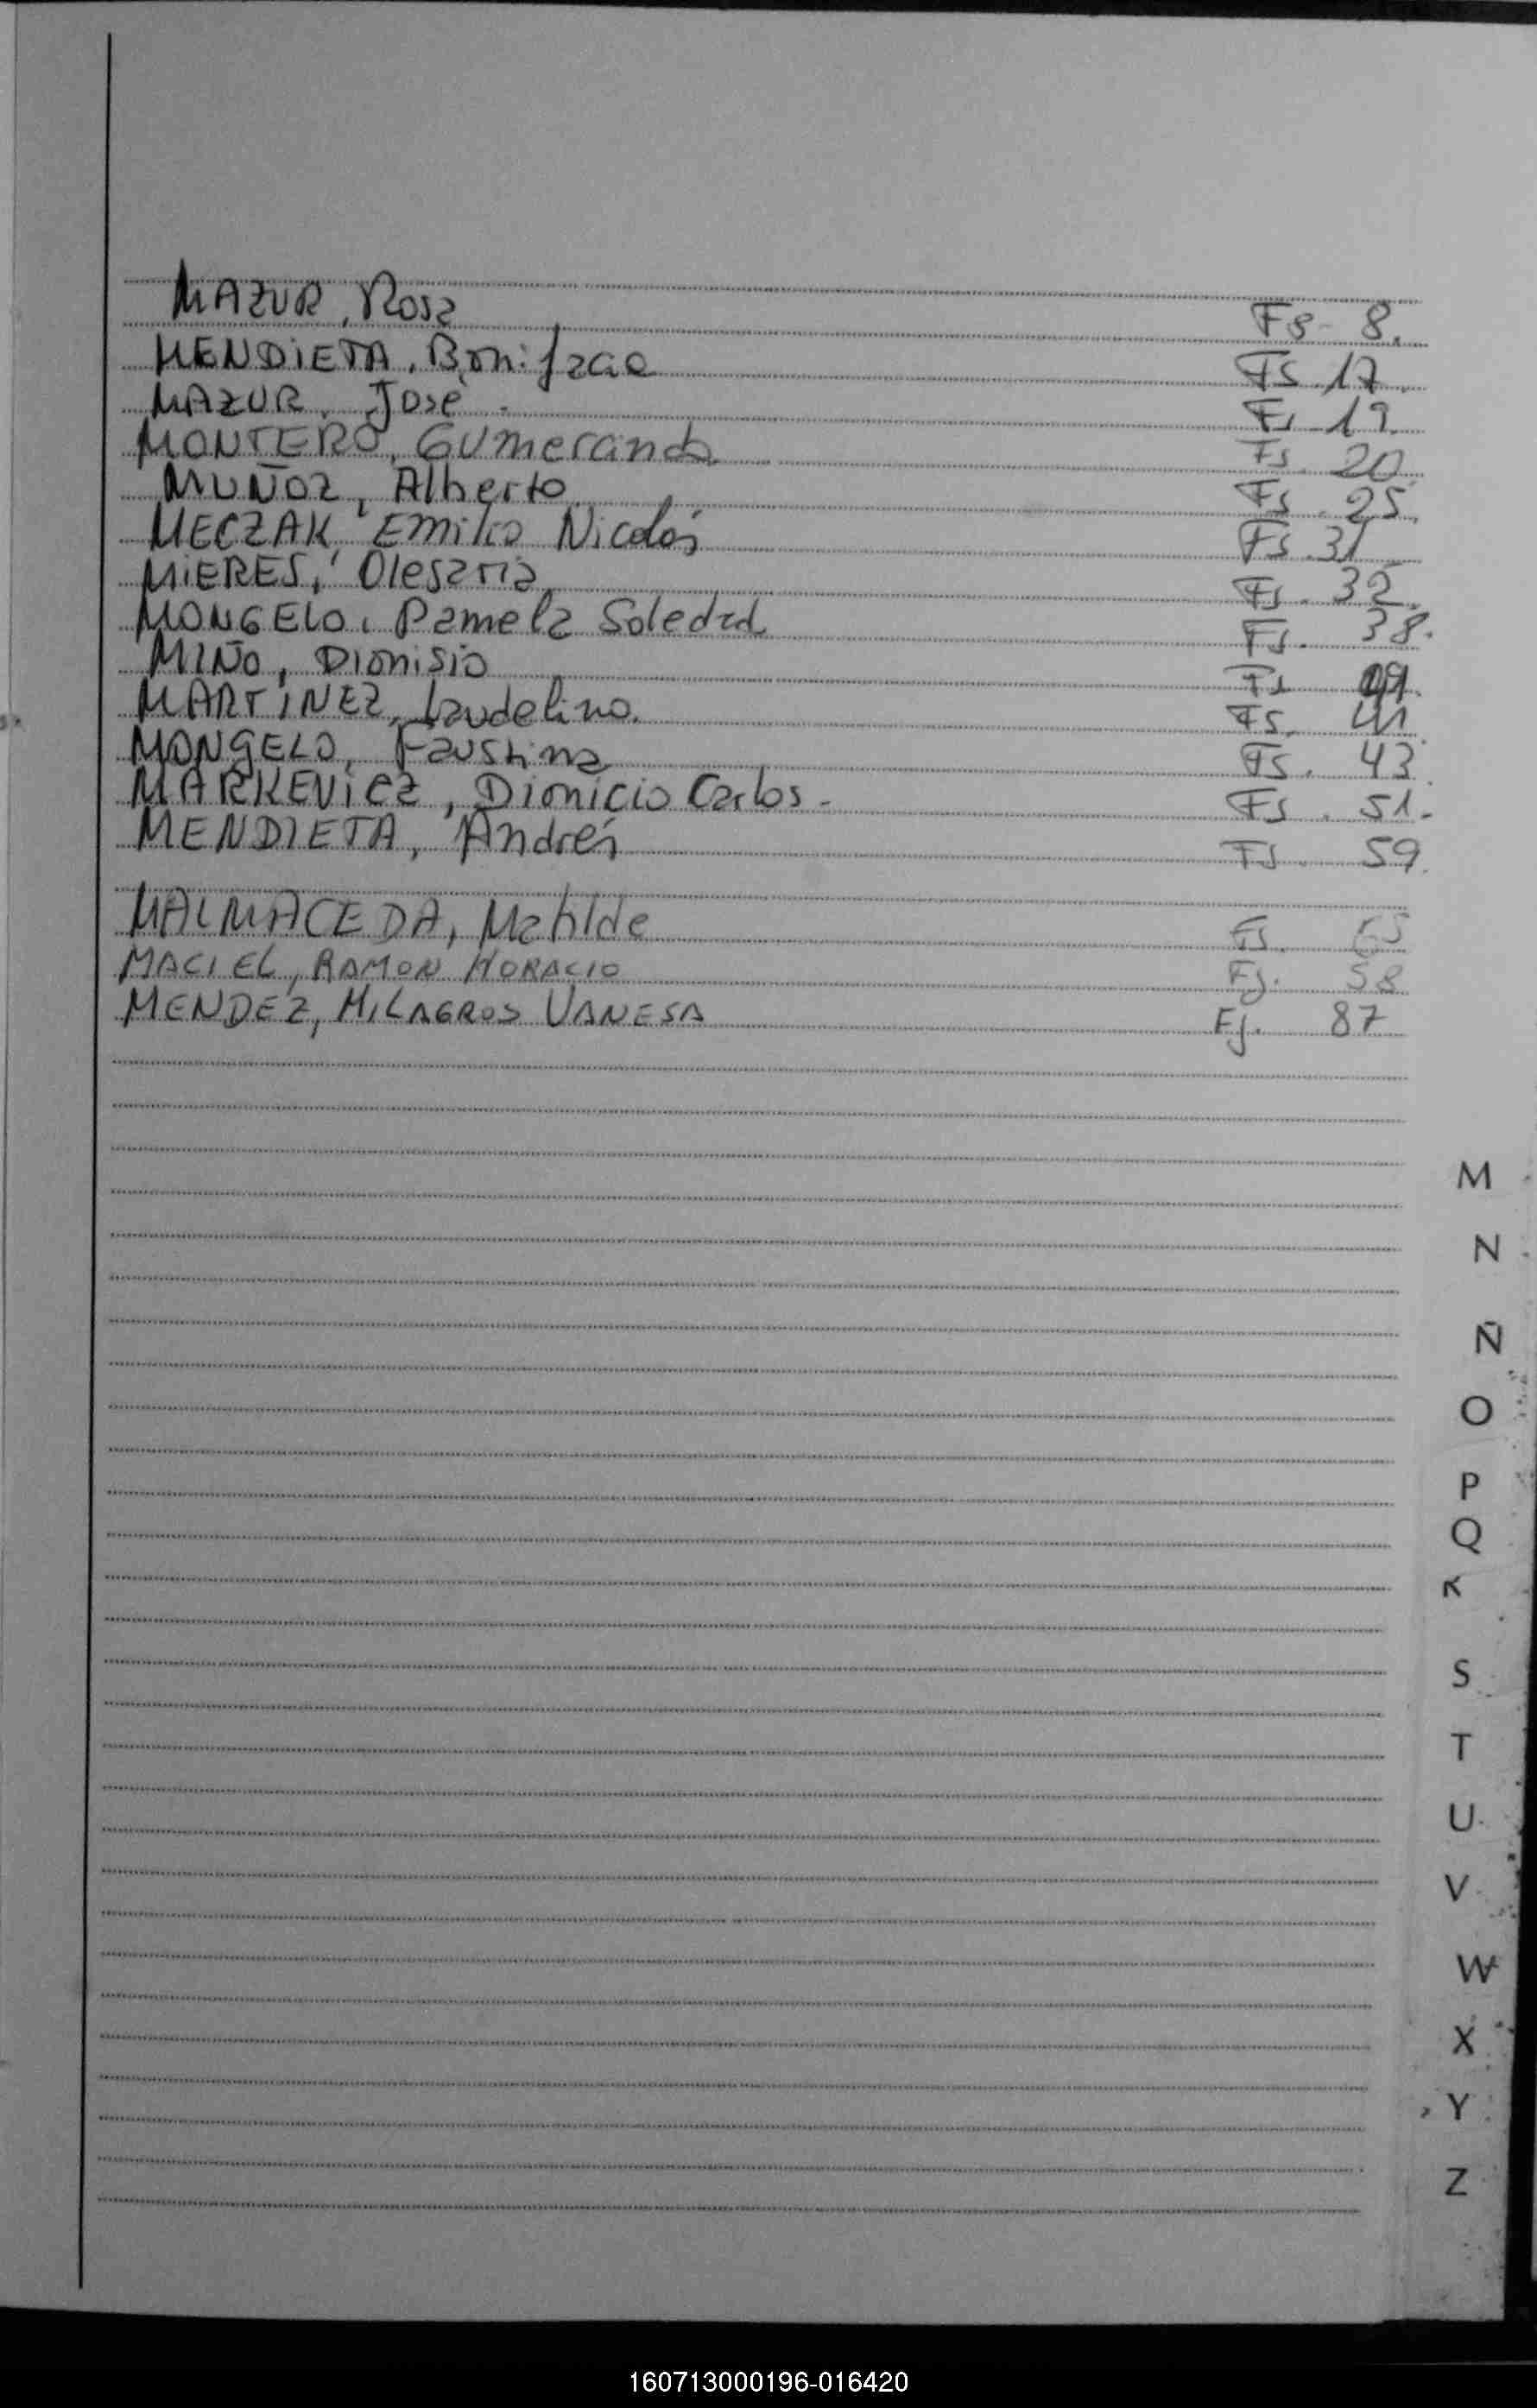 MAZUR, Rosa Fs- 8.
MENDiETA, Bonifacia Fs. 17.
MAZUR, José. Fs. 19.
MONTERO, Gumercinda Fs. 20.
MUÑOZ, Alberto Fs. 25.
MECZAK, Emilio Nicolás Fs. 31
MiERES, Olegaria Fs. 32.
MONGELO, Pamela Soledad Fs. 38.
MIÑO, Dionisio Fs
MARTíNEZ, Laudelino. Fs. 41
MONGELO, Faustina Fs. 43.
MARKEViCZ, Dionicio Carlos. Fs. 51.
MENDIETA, Andrés Fs. 59.
MALMACEDA, Matilde Fs.
MACIEL, RAMON HORACIO Fj. 58
MENDEZ, MILAGROS VANESA Fj. 87
M
N
Ñ
O
P
Q
R
S
T
U
V
W
X
Y
Z
160713000196-016420